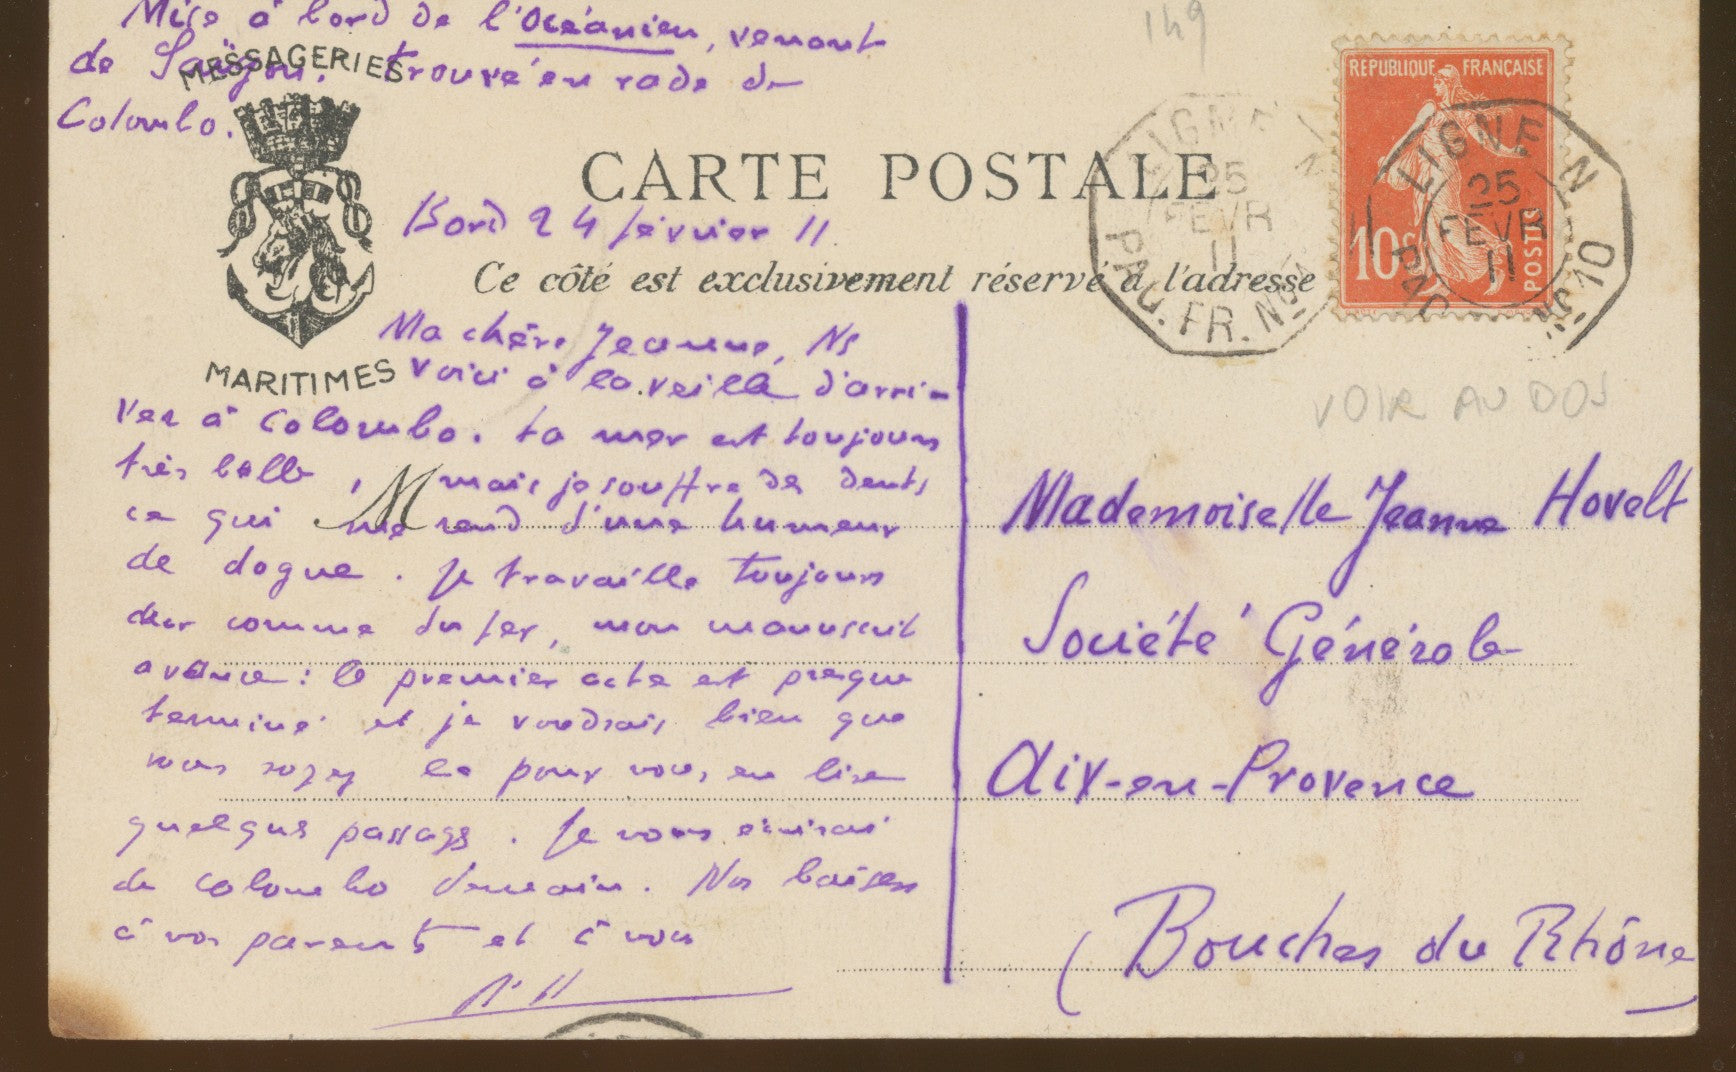 Mise à bord de l'Océanien, venant
de Saïgon. Trouvé en rade de
Colombo.
149
MESSAGERIES
MARITIMES
CARTE POSTALE
Bord 24 février 11
Ce côté est exclusivement réservé à l'adresse
REPUBLIQUE FRANÇAISE
10c
POSTES
LIGNE N
25
FEVR
11
PAQ. FR. No 10
LIGNE N
25
FEVR
11
PAQ No 10
VOIR AU DOS
Ma chère Jeanne, Ns
voici à la veille d'arri-
ver à Colombo. La mer est toujours
très belle, mais je souffre des dents
M
ce qui me rend d'une humeur
de dogue. Je travaille toujours
dur comme du fer, mon manuscrit
avance : le premier acte est presque
terminé et je voudrais bien que
vous soyez là pour vous en lire
quelques passages. Je vous écrirai
de Colombo demain. Nos baisers
à vos parents et à vous
Mademoiselle Jeanne Hovelt
Société Générale
Aix-en-Provence
(Bouches du Rhône